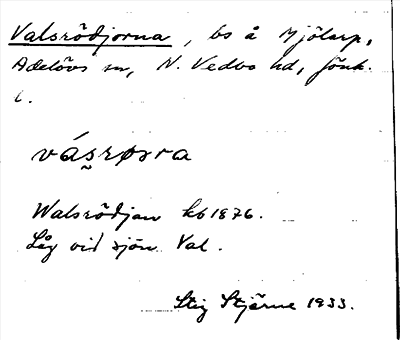 Valsrödjorna, bs å Mjölarp,
Adelövs sn, N. Vedbo hd, Jönk.
l.
vásrørra
Walsrödjan kb 1876.
Låg vid sjön Val.
Stig Stjärne 1933.